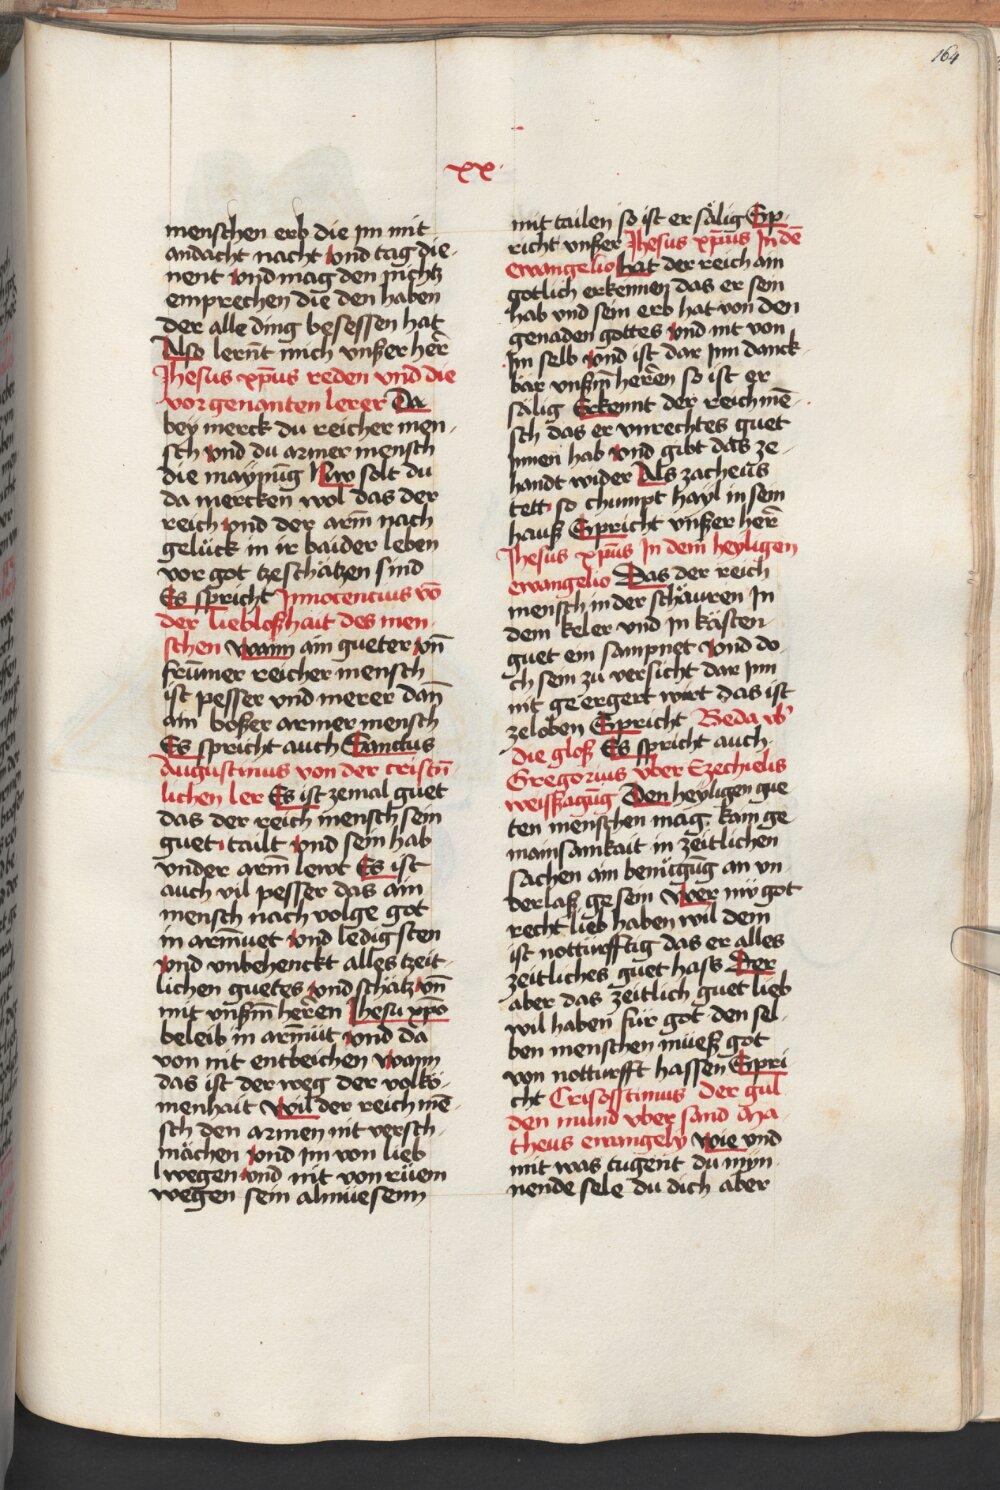 164
xx
menschen erb die im mit
andacht nacht vnd tag die-
nent vnd mag den nichtz
emprechen die den haben
der alle ding besessen hat
Also lernt mich vnßer her̄
Jhesus xp̄us reden vnd die
vorgenanten lerer Da
bey merck du reicher men-
sch vnd du armer mensch
die maynūg Nw solt du
da mercken wol das der
reich vnd der arm̄ nach
gelück in ir baider leben
vor got tzeschätzen sind
Es spricht Innocencius vō
der liebloßhait des men-
schen wann ain gueter vn̄
frūmer reicher mensch
ist pesser vnd merer dan̄
ain boßer armer mensch
Es spricht auch Sanctus
Augustinus von der cristn̄
lichen ler Es ist zemal guet
das der reich mensch sein
guet tailt vnd sein hab
vnder arm̄ lewt Es ist
auch vil pesser das ain
mensch nach volge got
in arm̄uet vnd ledigsten
vnd vnbehenckt alles tzeit-
lichen guetes vnd schätz vn̄
mit vnßm̄ herren Jhesu xp̄o
beleib in arm̄üt vnd da
von nit entbeichen wann
das ist der weg der volkō-
menhait wil der reich mē-
sch den armen nit versch-
mächen vnd im von lieb
wegen vnd nit von rüem
wegen sein almüesenn
mit tailen so ist er sälig Sp-
richt vnßer Jhesus xp̄us In dē
ewangelio hat der reich ain
gotlich erkennen das er sein
hab vnd sein erb hat von den
genaden gottes vnd nit von
im selb vnd ist dar inn danck-
bär vnßm̄ herren so ist er
sälig Erkennt der reich mē-
sch das er vnrechtes guet
jnnen hab vnd gibt das ze-
handt wider Als zacheus
tett so chumpt hayl in sein
hauß Spricht vnßer her̄
Jhesus xp̄us In dem heyligen
ewangelio Das der reich
mensch in der schäuren In
dem keler vnd in kästen
guet ein sampnet vnd do-
ch sein zu versicht dar inn
nit geergert wirt das ist
zeloben Spricht Beda vb'
die gloß Es spricht auch
Gregorius vber Ezechielis
weissagūg Den heyligen gue
ten menschen mag kain ge
mainsamkait in zeitlichen
sachen ain benügūg an vn
verlaß gesein wer nu got
recht lieb haben wil dem
ist notturfftig das er alles
zeitliches guet hass Der
aber das zeitlich guet lieb
wil haben für got den sel-
ben menschen mueß got
von notturfft hassen Spri
cht Crisostimus Der gul
den mund vber sand Ma
theus ewangely wie vnd
mit was tugent du mÿn
nende sele du dich aber